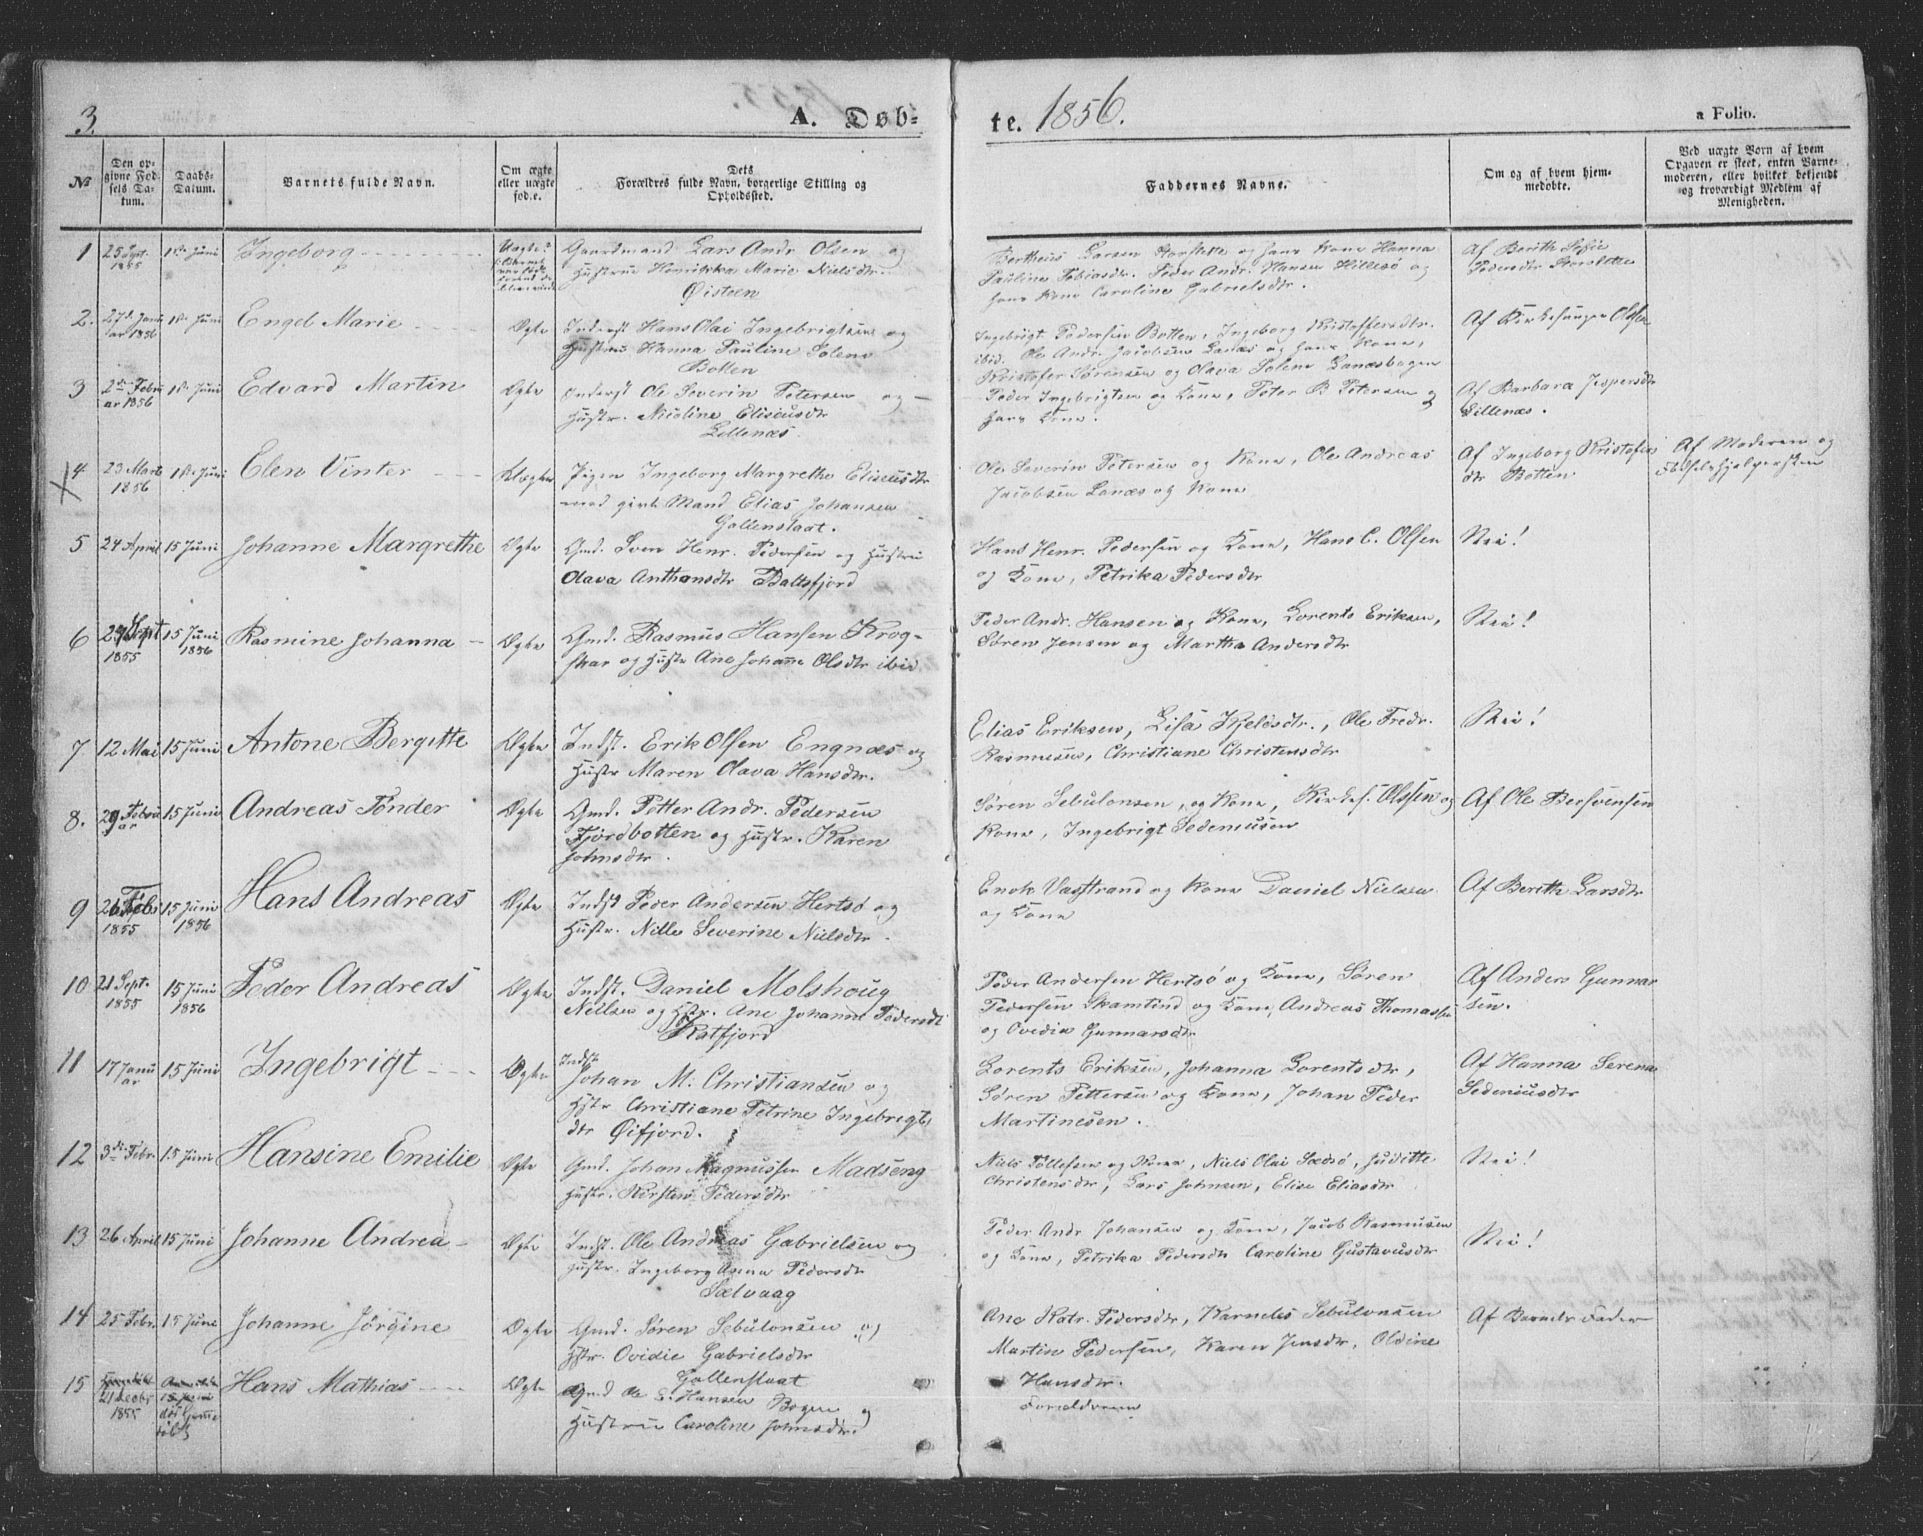 3.
A. Døb-
te. 1856.
a Folio.
No
Den op-
givne Fød-
sels Da-
tum.
Daabs-
Datum.
Barnets fulde Navn.
Om ægte
eller uægte
føde.
Dets
Forældres fulde Navn, borgerlige Stilling og
Opholdssted.
Faddernes Navne.
Om og af hvem hjem-
medøbte.
Ved uægte Børn af hvem
Opgaven er skeet, enten Barne-
moderen, eller hvilket bekjendt
og troværdigt Medlem af
Menigheden.
1
25 Sept.
1855
1ste Juni
Ingeborg
Gaardmand Lars Andr Olsen og
Hustrue Henrikka Marie Nielsdtr.
Øisteen
Bertheus Larsen Storslette og hans Kone Hanna
Pauline Tobiasdtr. Peder Andr. Hansen Hillesø og
hans Kone Caroline Gabrielsdtr.
Af Berith Sofie
Pedersdtr Storslette
2.
27de Janu
ar 1856
1ste Juni
Engel Marie
Ægte
Inderst Hans Olai Ingebrigtsen og
Hustrue Hanna Pauline Solene
Botten
Ingebrigt Pedersen Botten, Ingeborg Kristoffersdtr.
ibid. Ole Andr. Jacobsen Lanæs og hans Kone,
Kristofer Sørensen og Olava Solene Lanæsbogen
Af Kirkesanger Olsen
3
2den Febru
ar 1856
1ste Juni
Edvard Martin
Ægte
Inderst Ole Severin Petersen og
Hustr. Nicoline Eliseusdtr
Lillenæs.
Peder Ingebrigtsen og Kone, Peter B Petersen og
hans Kone.
Af Barbara Jespersdtr
Lillenæs.
4
23 Marts
1856
1ste Juni
Elen Vinter
Uægte
Pigen Ingeborg Margrethe Eliseusdtr
med givt Mand Elias Johansen
Gollenstaat.
Ole Severin Petersen og Kone, Ole Andreas
Jacobsen Lanæs og Kone
Af Ingeborg Kristofers
dtr Botten
Af Moderen og
Fødselshjelpersken
5
24 April
15 Juni
Johanne Margrethe
Ægte
Gmd. Sven Henr. Pedersen og Hustrue
Olava Anthonsdtr Baltsfjord
Hans Henr. Pedersen og Kone, Hans C. Olsen
og Kone, Petrika Pedersdtr
Nei!
6
Sept
1855
15 Juni
1856
Rasmine Johanna
Ægte
Gmd. Rasmus Hansen Krog-
skar og Hustr Ane Johanne Olsdtr ibid
Peder Andr. Hansen og Kone, Lorents Eriksen,
Søren Jensen og Martha Andersdtr
Nei!
7
12 Mai
15 Juni
Antone Bergitte
Ægte
Indst. Erik Olsen Engnæs og
Hustr Maren Olava Hansdtr.
Elias Eriksen, Lisa Kjelsdtr., Ole Fredr.
Rasmussen, Christiane Christensdtr
Nei!
8.
29 Febru
ar
15 Juni
Andreas Tønder
Ægte
Gmd. Petter Andr. Pedersen
Fjordbotten og Hustr. Karen
Johnsdtr.
Søren Sebulonsen, og Kone, Kirkes. Olssen og
Kone, Ingebrigt Sedeniusen
Af Ole Bersvensen
9
26 Feb
1855
15 Juni
1856
Hans Andreas
Ægte
Indst Peder Andersen Hertsø og
Hustr. Nille Severine Nielsdtr.
Enok Vasstrand og Kone Daniel Nielsen
og Kone
Af Berith Larsdtr
10
21 Sept.
1855
15 Juni
1856
Peder Andreas
Ægte
Indst. Daniel Molshoug
Nielsen og Hstr. Ane Johanne Pedersdt
Katfjord
Peder Andersen Hertsø og Kone, Søren
Pedersen Skamtind og Kone, Andreas Thomassen
og Ovedia Gunnarsdtr
Af Anders Gunnar
sen.
11
17 Janu
ar
15 Juni
Ingebrigt
Ægte
Indst
Johan M. Christiansen og
Hstr Christiane Petrine Ingebrigts
dtr Øifjord.
Lorents Eriksen, Johanna Lorentsdtr,
Søren Pettersen og Kone, Johan Peder
Martinesen.
Af Hanna Serena
Sedeniusdtr
12
3die Febr.
15 Juni
Hansine Emilie
Ægte
Gmd. Johan Magnussen Madseng
Hustr. Kirsten Pedersdtr
Niels Tollefsen og Kone, Niels Olai Sædsø, Juditte
Christensdtr, Lars Johnsen, Elise Eliasdtr
Nei!
13
26 April
15 Juni
Johanne Andrea
Ægte
Indst. Ole Andreas Gabrielsen og
Hustr. Ingeborg Anna Pedersdtr
Sælvaag
Peder Andr Johansen og Kone, Jacob Rasmussen
og Kone, Petrika Pedersdtr Caroline Gustavusdtr
Nei!
14
25 Febr.
15 Juni
Johanne Jørgine
Ægte
Gmd. Søren Sebulonsen og
Hstr. Ovidie Gabrielsdtr
Gollenstaat
Ane Katr. Pedersdtr, Karneles Sebulonsen
Martin Pedersen, Karen Jensdtr, Oldine
Hansdtr.
Af Barnets Fader
15
21 Decbr
1855
Hans Mathias
Ægte
Gmd Ole E. Hansen Bogen og
Hustrue Caroline Johnsdtr
Forældrene